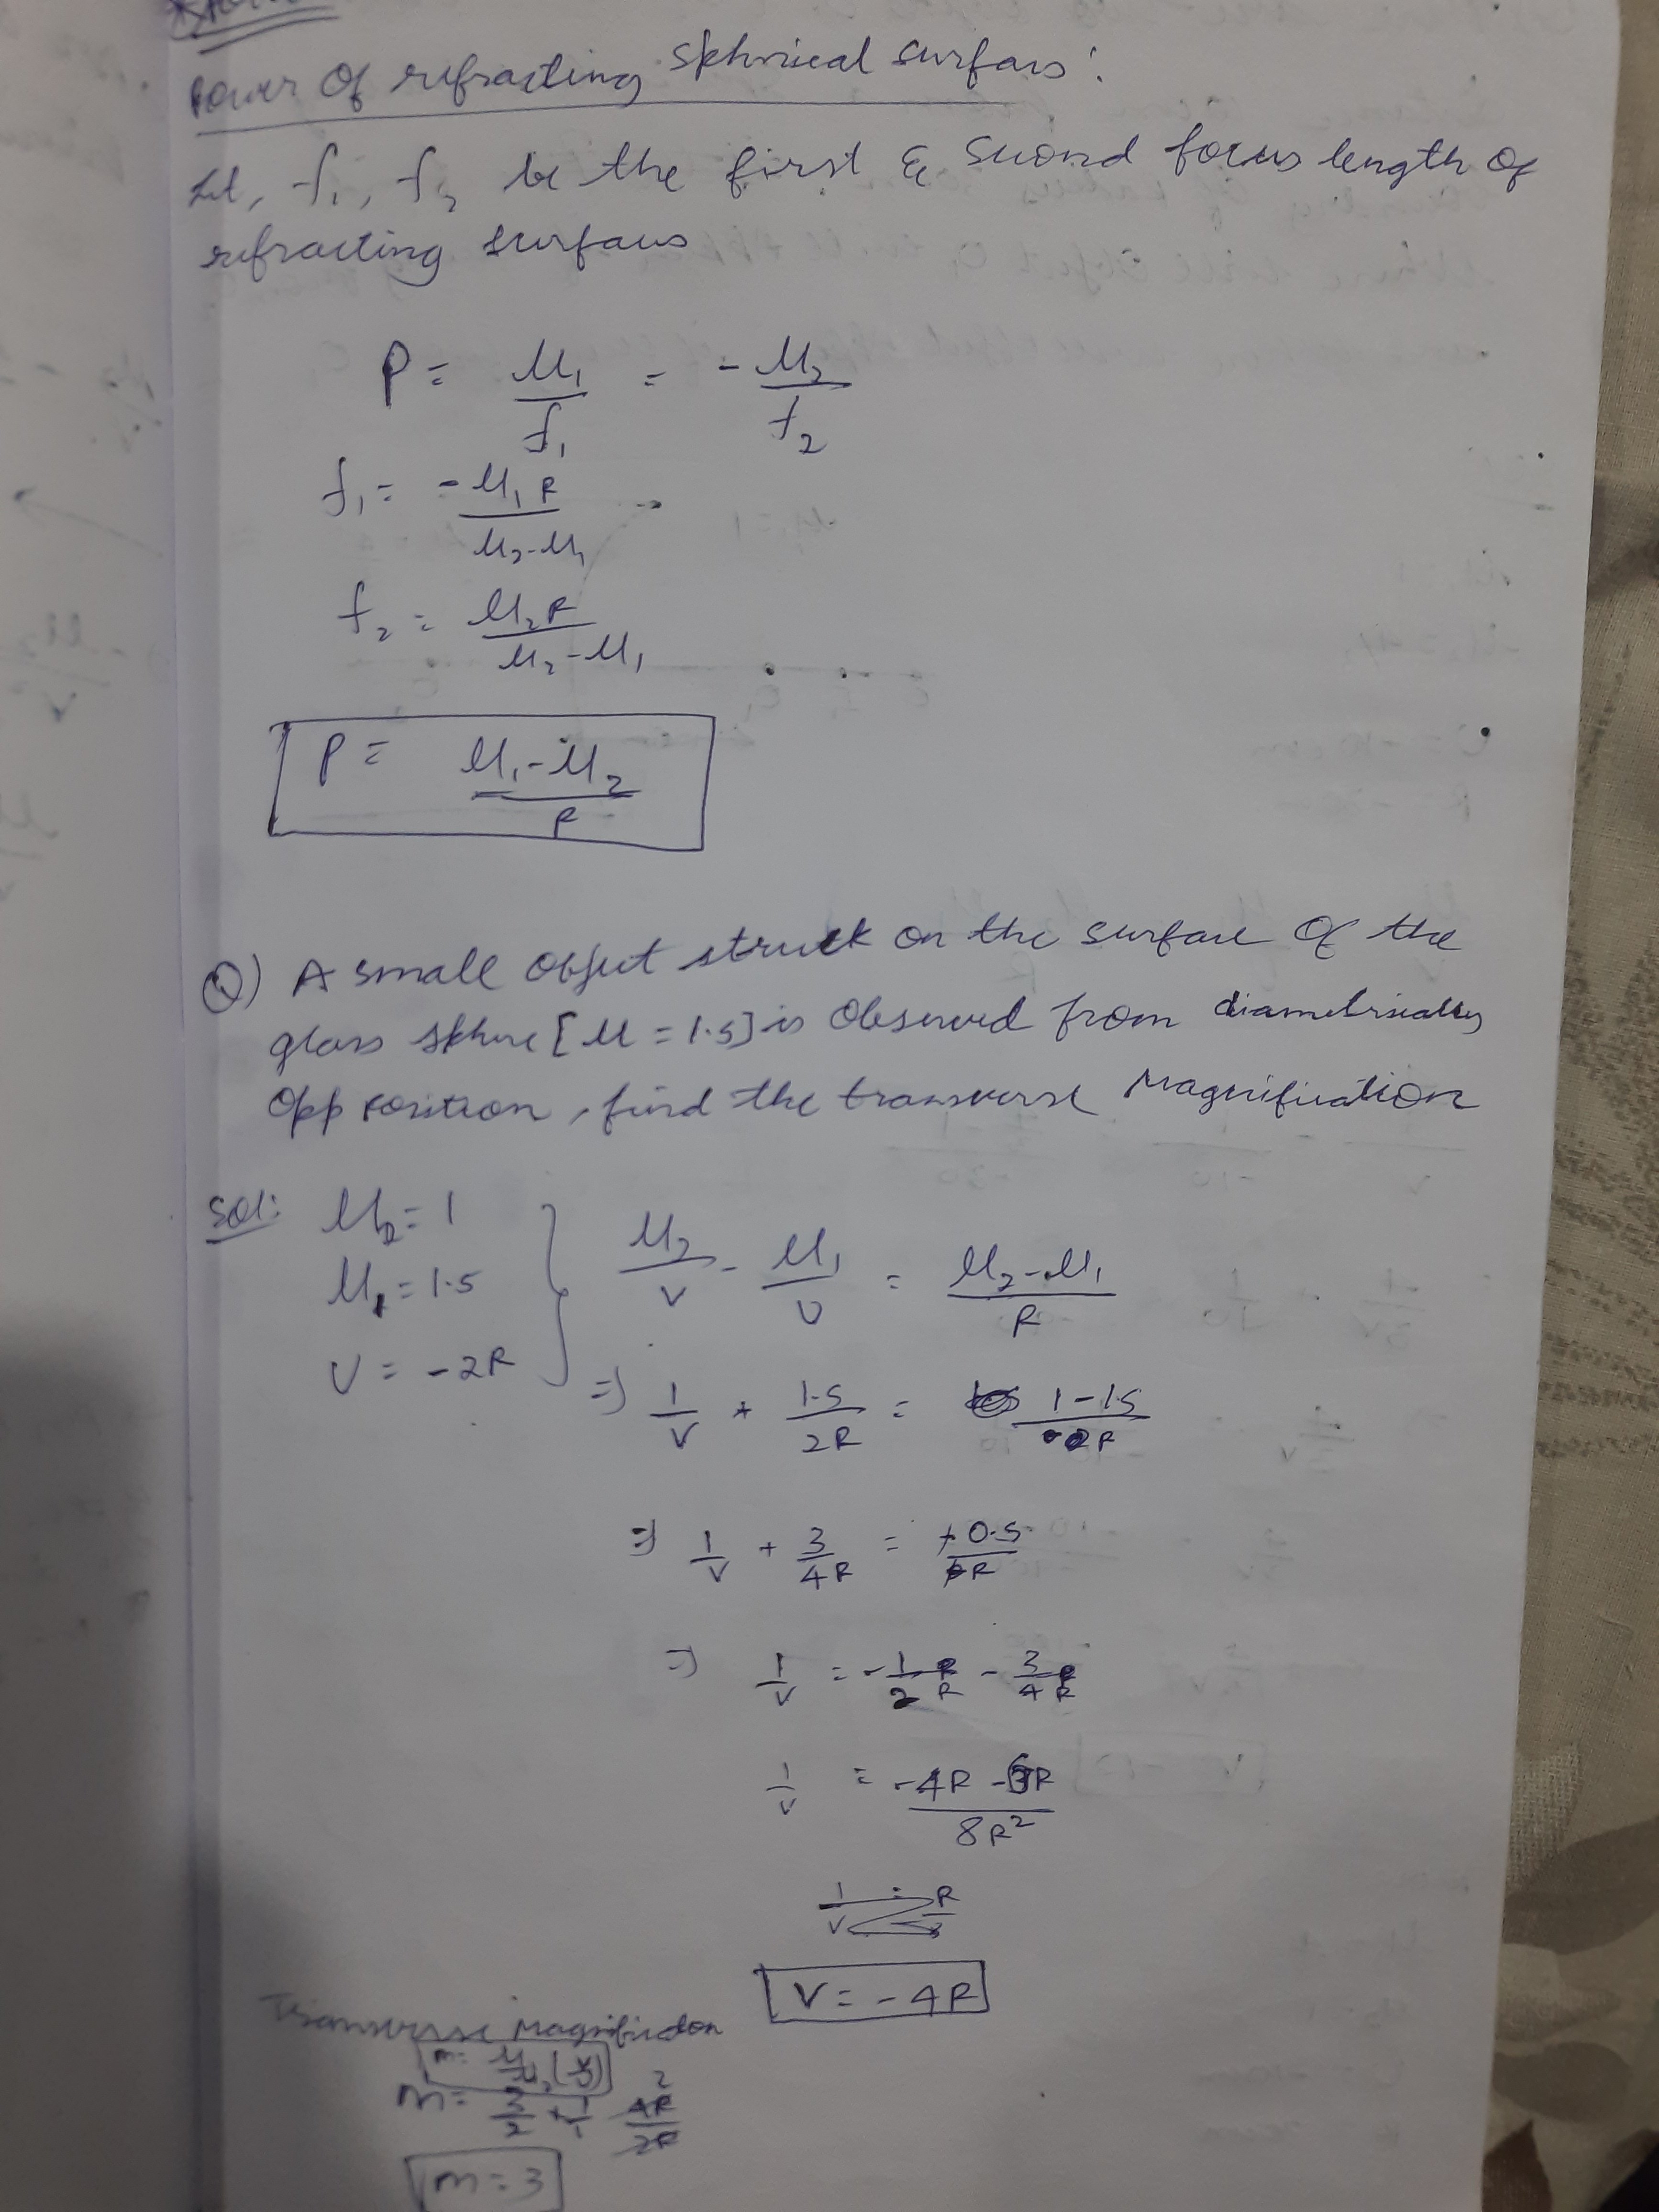 Power Of refracting Sphrical surfars :
Let, f₁, f₂ be the first & Suond focus length of
refracting surfaus
P = μ₁/f₁ = -μ₂/f₂
f₁ = -μ₁R/μ₂-μ₁
f₂ = μ₂R/μ₂-μ₁
P = μ₁-μ₂/R
Q) A small object struck on the surface Of the
glass sphere [μ = 1.5] is Observed from diametrically
Opp position, find the transverse Magnification
Sol: μ₂ = 1
μ₁ = 1.5
U = -2R
μ₂/v - μ₁/U = μ₂-μ₁/R
⇒ 1/v + 1.5/2R = 1-1.5/-R
⇒ 1/v + 3/4R = +0.5/R
⇒ 1/v = -1/2R - 3/4R
1/v = -4R-6R/8R²
V = -4R
Transverse Magnification
m = μ₁/μ₂(v/u)
m = 3/2 × 1/1 4R/2R 2
m = 3